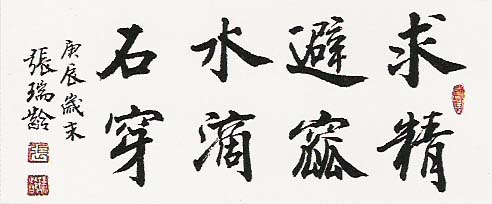 求精
避窳
水滴
石穿
庚辰歲末
張瑞齡